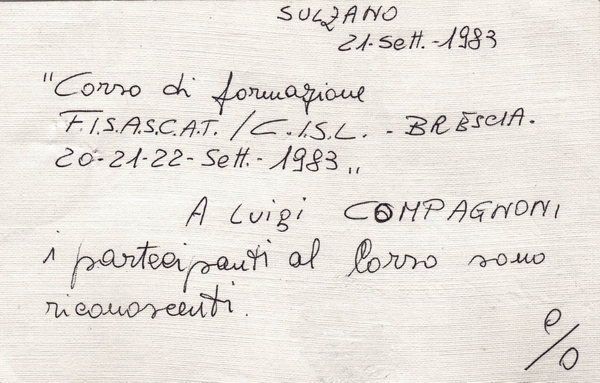 SULZANO
21-Sett.-1983
"Corso di formazione
F.I.S.A.S.C.A.T. / C.I.S.L. - BRESCIA.
20-21-22-Sett.-1983"
A Luigi COMPAGNONI
i partecipanti al Corso sono
riconoscenti.